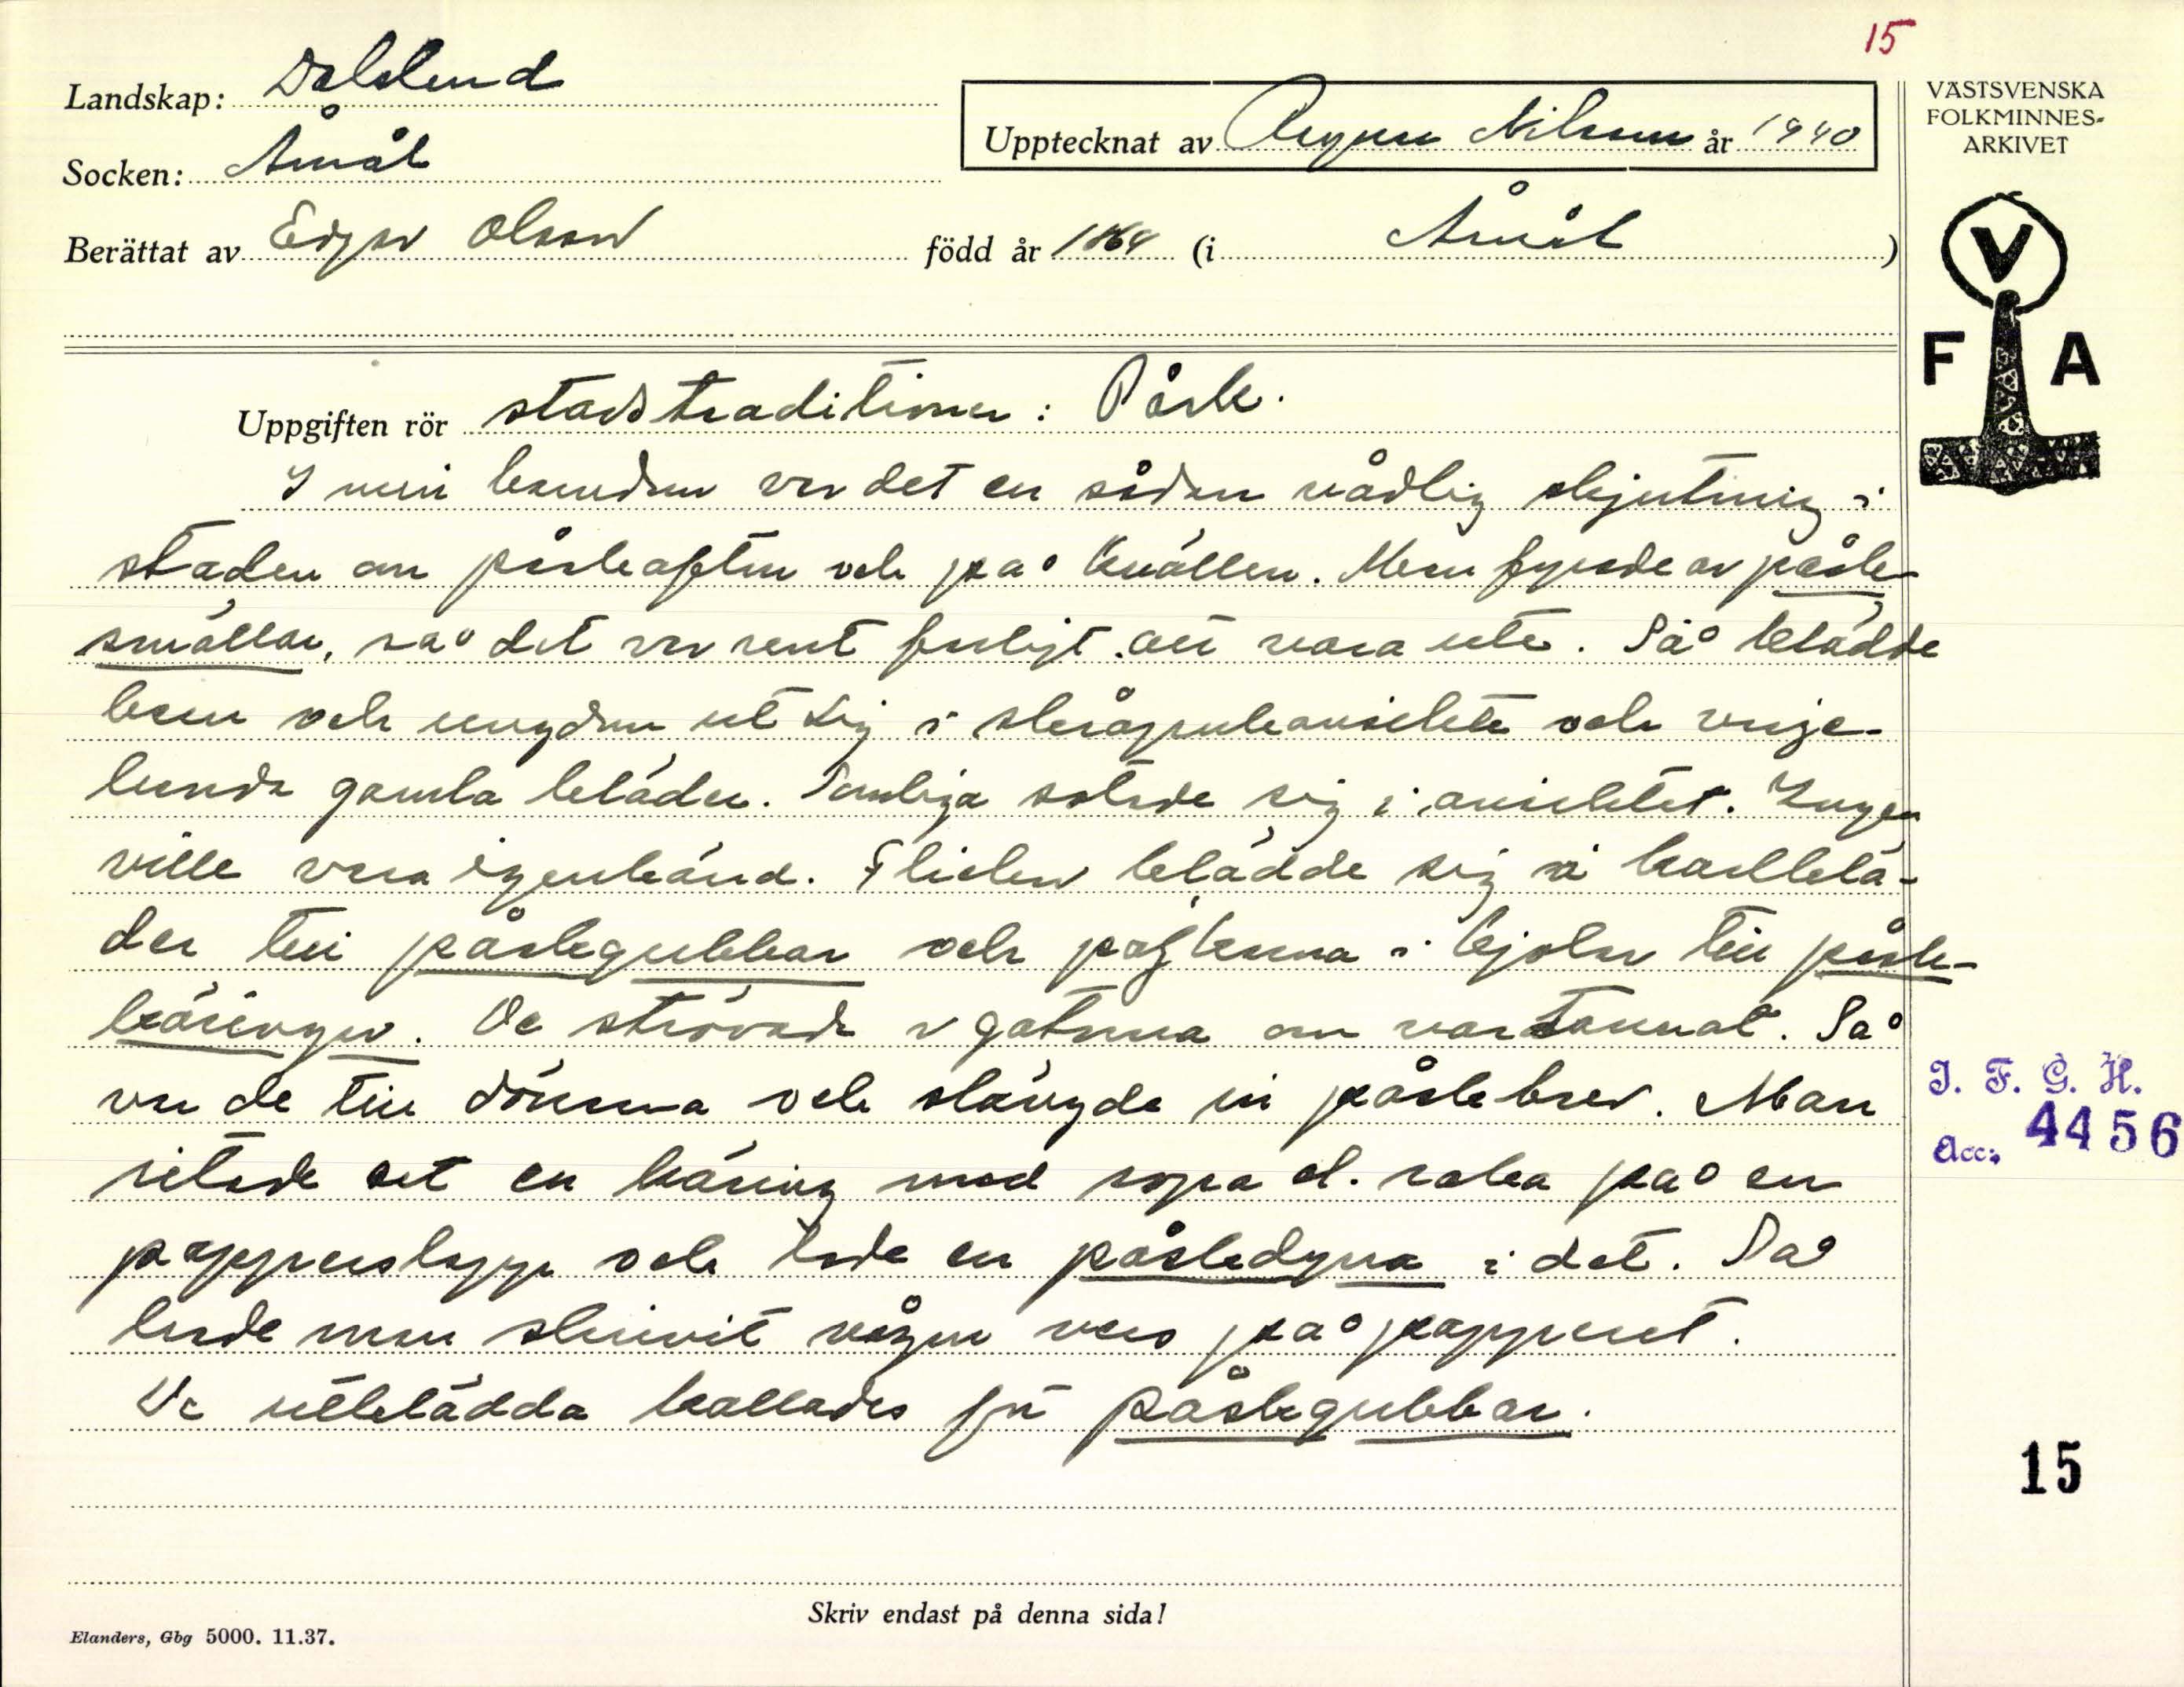 15
Landskap: Dalsland
Socken: Åmål
Berättat av Edgar Olsson född år 1864 (i Åmål)
Upptecknat av Ragnar Nilsson år 1940
VÄSTSVENSKA
FOLKMINNES-
ARKIVET
V
F A
Uppgiften rör stadstraditioner: Påsk.
I min barndom var det en sådan vådlig skjutning i
staden om påskaften och på kvällen. Man fyrade av påsk-
smällar, så det var rent farligt att vara ute. Så klädde
barn och ungdom ut sig i skråpukansikte och varje-
handa gamla kläder. Somliga sotade sig i ansiktet. Ingen
ville vara igenkänd. Flickor klädde sig i karlklä-
der till påskgubbar och pojkarna i kjolar till påsk-
käringar. De strövade i gatorna om vartannat. Så
var de till dörrarna och slängde in påskbrev. Man
ritade ut en käring med sopa el. raka på en
papperslapp och lade en påskedyna i det. Så
hade man skrivit någon vers på papperet.
De utklädda kallades för påskgubbar.
I. F. G. H.
Acc. 4456
15
Skriv endast på denna sida!
Elanders, Gbg 5000. 11.37.